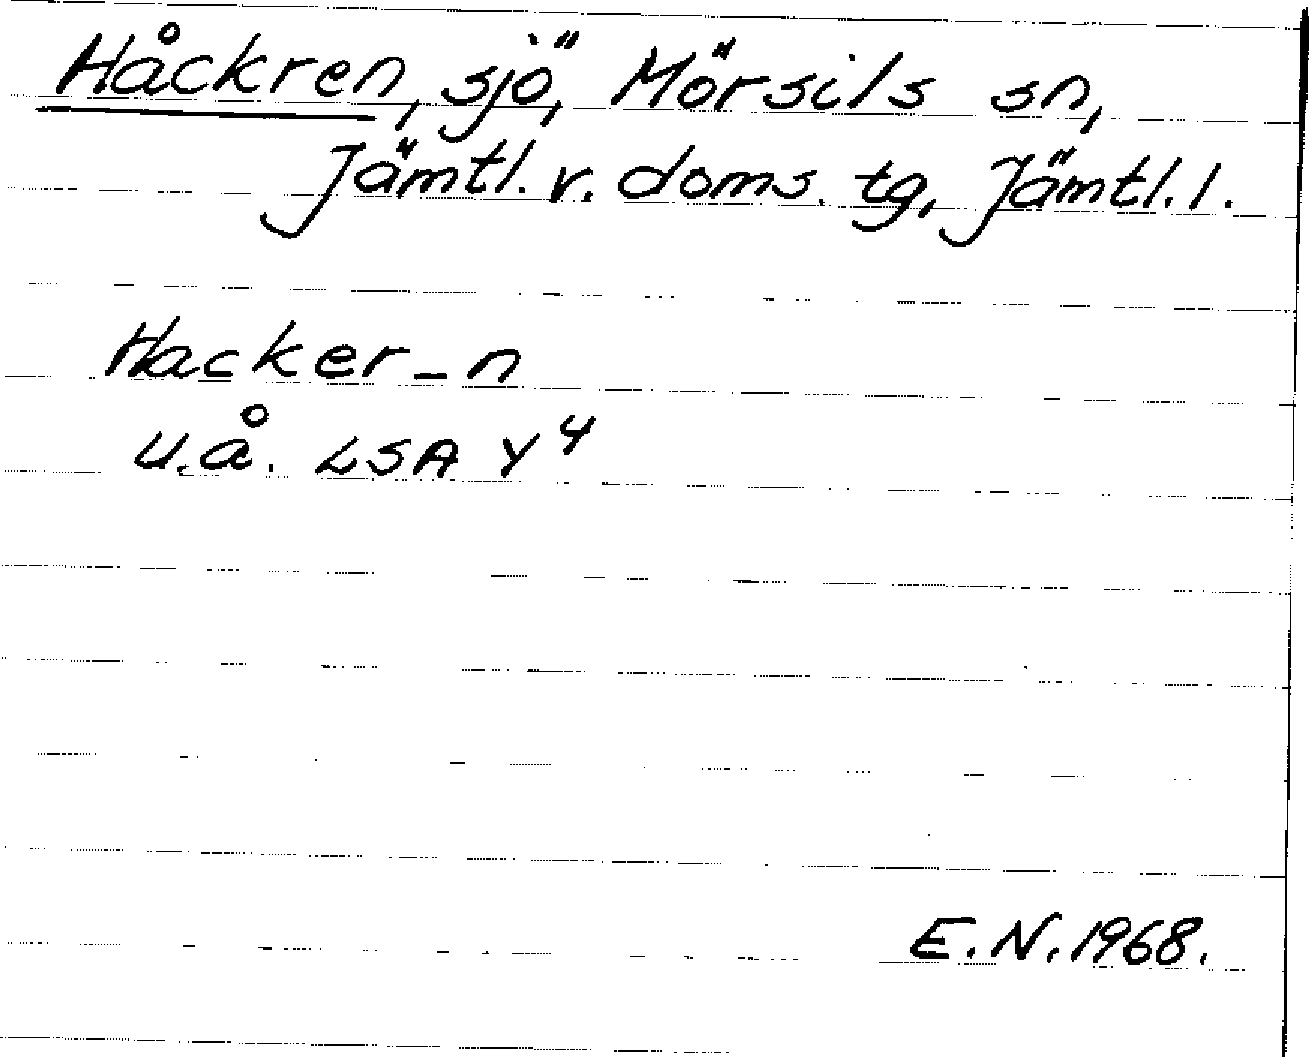 Håckren, sjö, Mörsils sn,
Jämtl. v. doms. tg, Jämtl. l.
Hacker-n
u.å. LSA Y4
E.N. 1968.